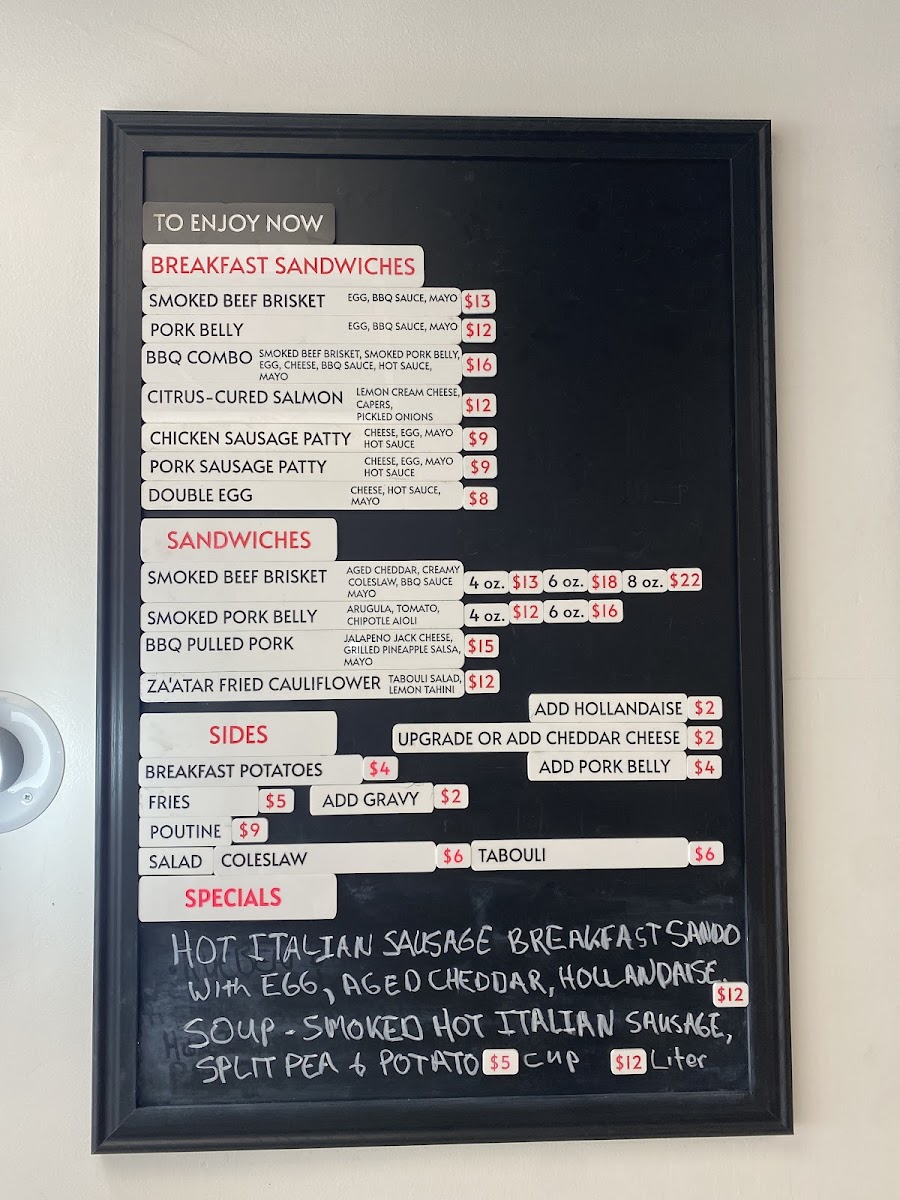 TO ENJOY NOW
BREAKFAST SANDWICHES
SMOKED BEEF BRISKET EGG, BBQ SAUCE, MAYO $13
PORK BELLY EGG, BBQ SAUCE, MAYO $12
BBQ COMBO SMOKED BEEF BRISKET, SMOKED PORK BELLY,
EGG, CHEESE, BBQ SAUCE, HOT SAUCE, $16
MAYO
CITRUS-CURED SALMON LEMON CREAM CHEESE,
CAPERS, $12
PICKLED ONIONS
CHICKEN SAUSAGE PATTY CHEESE, EGG, MAYO $9
HOT SAUCE
PORK SAUSAGE PATTY CHEESE, EGG, MAYO $9
HOT SAUCE
DOUBLE EGG CHEESE, HOT SAUCE, $8
MAYO
SANDWICHES
SMOKED BEEF BRISKET AGED CHEDDAR, CREAMY
COLESLAW, BBQ SAUCE 4 oz. $13 6 oz. $18 8 oz. $22
MAYO
SMOKED PORK BELLY ARUGULA, TOMATO, 4 oz. $12 6 oz. $16
CHIPOTLE AIOLI
BBQ PULLED PORK JALAPENO JACK CHEESE,
GRILLED PINEAPPLE SALSA, $15
MAYO
ZA'ATAR FRIED CAULIFLOWER TABOULI SALAD, $12
LEMON TAHINI
ADD HOLLANDAISE $2
SIDES UPGRADE OR ADD CHEDDAR CHEESE $2
BREAKFAST POTATOES $4 ADD PORK BELLY $4
FRIES $5 ADD GRAVY $2
POUTINE $9
SALAD COLESLAW $6 TABOULI $6
SPECIALS
HOT ITALIAN SAUSAGE BREAKFAST SANDO
With EGG, AGED CHEDDAR, HOLLANDAISE.
$12
SOUP - SMOKED HOT ITALIAN SAUSAGE,
SPLIT PEA & POTATO $5 CUP $12 Liter